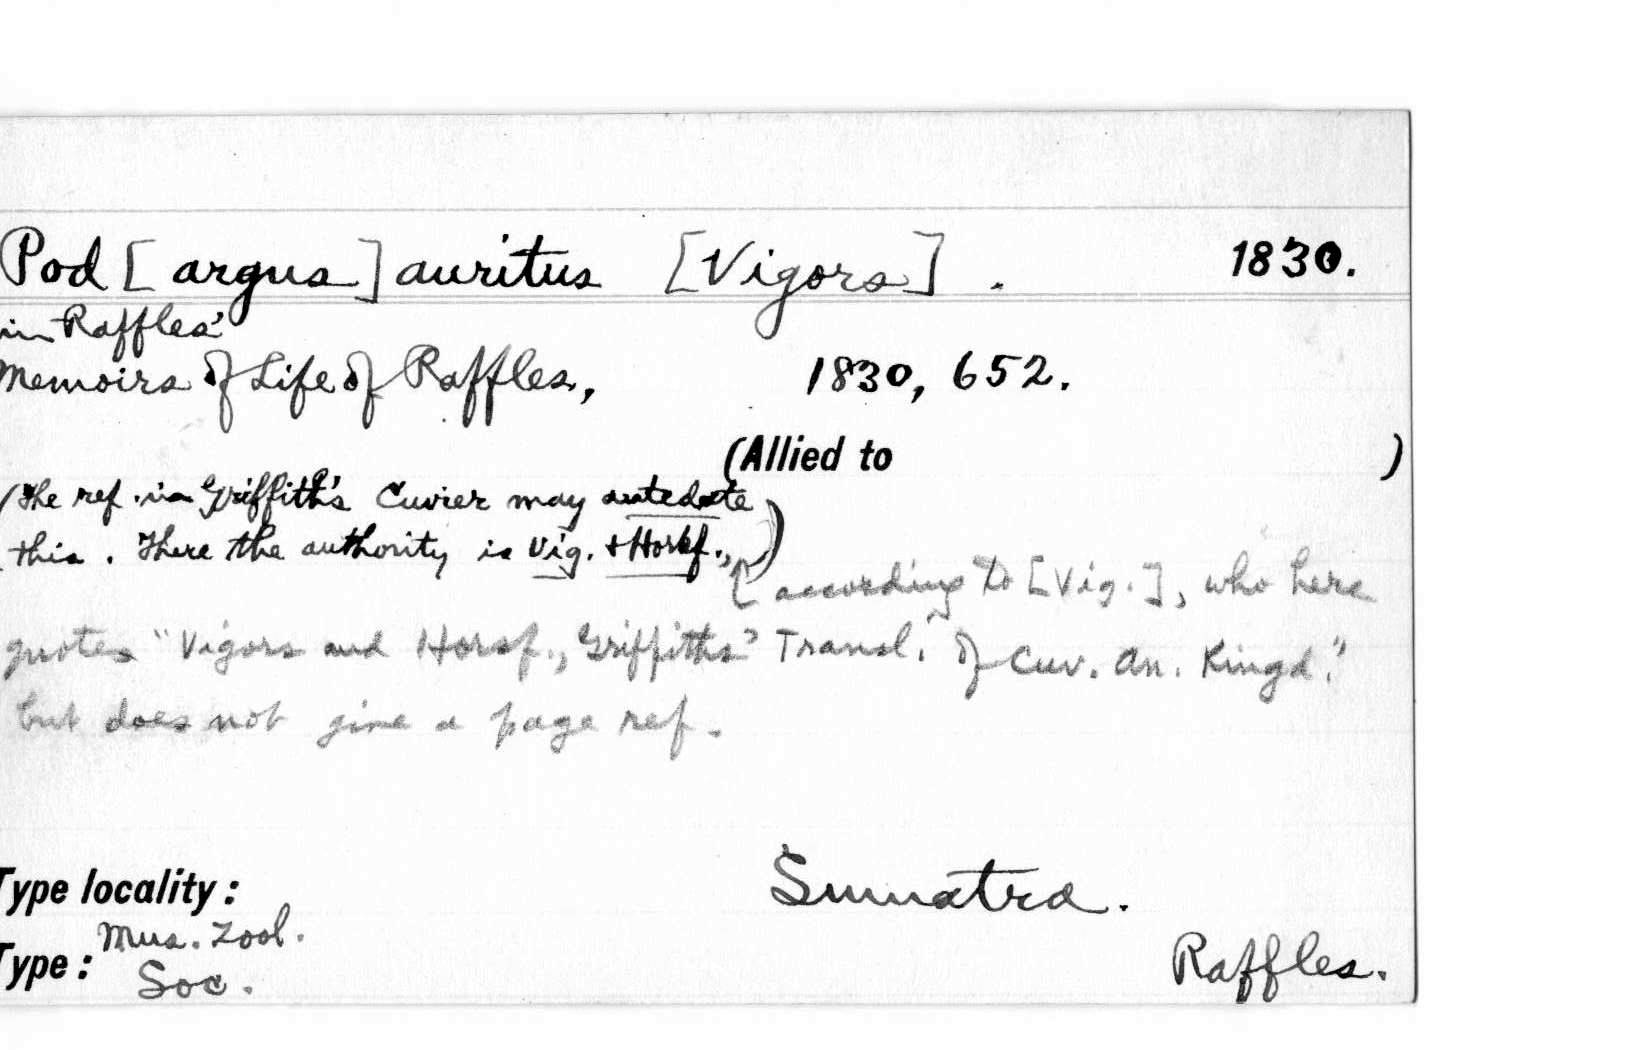 Pod [argus] auritus [Vigors]. 1830.
in Raffles'
Memoirs of Life of Raffles, 1830, 652.
(Allied to )
(The ref. in Griffith's Cuvier may antedate
this. There the authority is Vig. & Horsf.,)
[according to [Vig.], who here
quotes "Vigors and Horsf., Griffiths' Transl. of Cuv. An. Kingd."
but does not give a page ref.
Type locality: Sumatra.
Type: Mus. Zool.
Soc. Raffles.